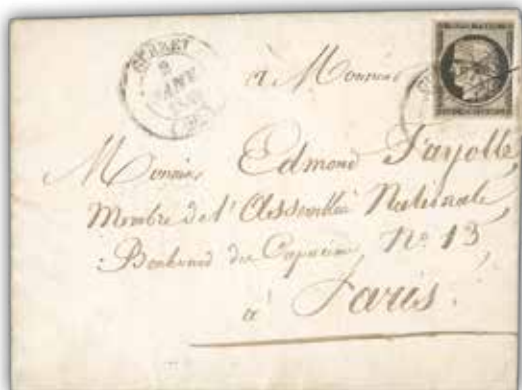 GUERET
2
JANV
à Monsieur
Monsieur Edmond Fayolle,
Membre de l'Assemblée Nationale,
Boulevard des Capucines, No. 13,
à Paris.